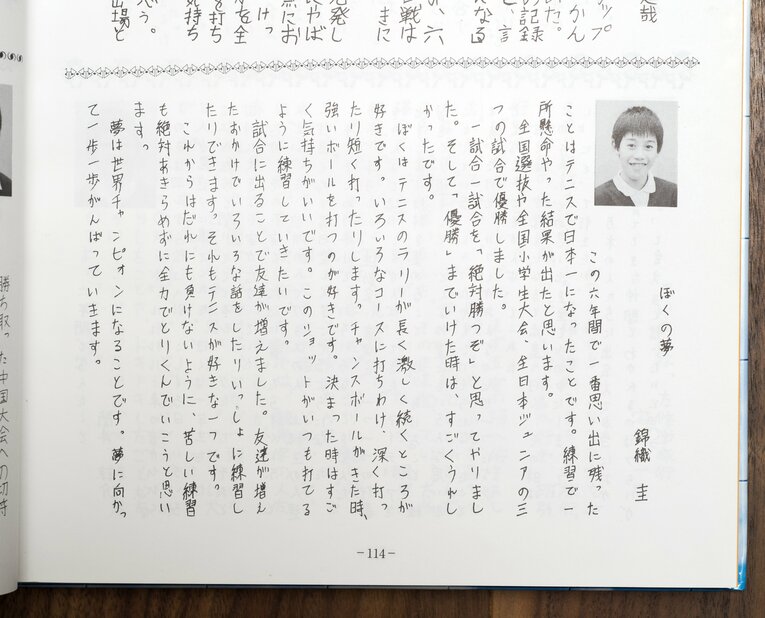 哉
ップ
かん
た。
の記録
と、言
なる
、六
戦は
きに
発し
やば
点にお
けっ
を全
を打ち
気持ち
う。
出場と
ぼくの夢
錦織 圭
この六年間で一番思い出に残った
ことはテニスで日本一になったことです。練習で一
所懸命やった結果が出たと思います。
全国選抜や全国小学生大会、全日本ジュニアの三
つの試合で優勝しました。
一試合一試合を「絶対勝つぞ」と思ってやりまし
た。そして「優勝」までいけた時は、すごくうれし
かったです。
ぼくはテニスのラリーが長く激しく続くところが
好きです。いろいろなコースに打ちわけ、深く打っ
たり短く打ったりします。チャンスボールがきた時、
強いボールを打つのが好きです。決まった時はすご
く気持ちがいいです。このショットがいつも打てる
ように練習していきたいです。
試合に出ることで友達が増えました。友達が増え
たおかけでいろいろな話をしたりいっしょに練習し
たりできます。それもテニスが好きな一つです。
これからはだれにも負けないように、苦しい練習
も絶対あきらめずに全力でとりくんでいこうと思い
ます。
夢は世界チャンピオンになることです。夢に向かっ
て一歩一歩がんばっていきます。
勝ち取った中国大会への切符
-114-